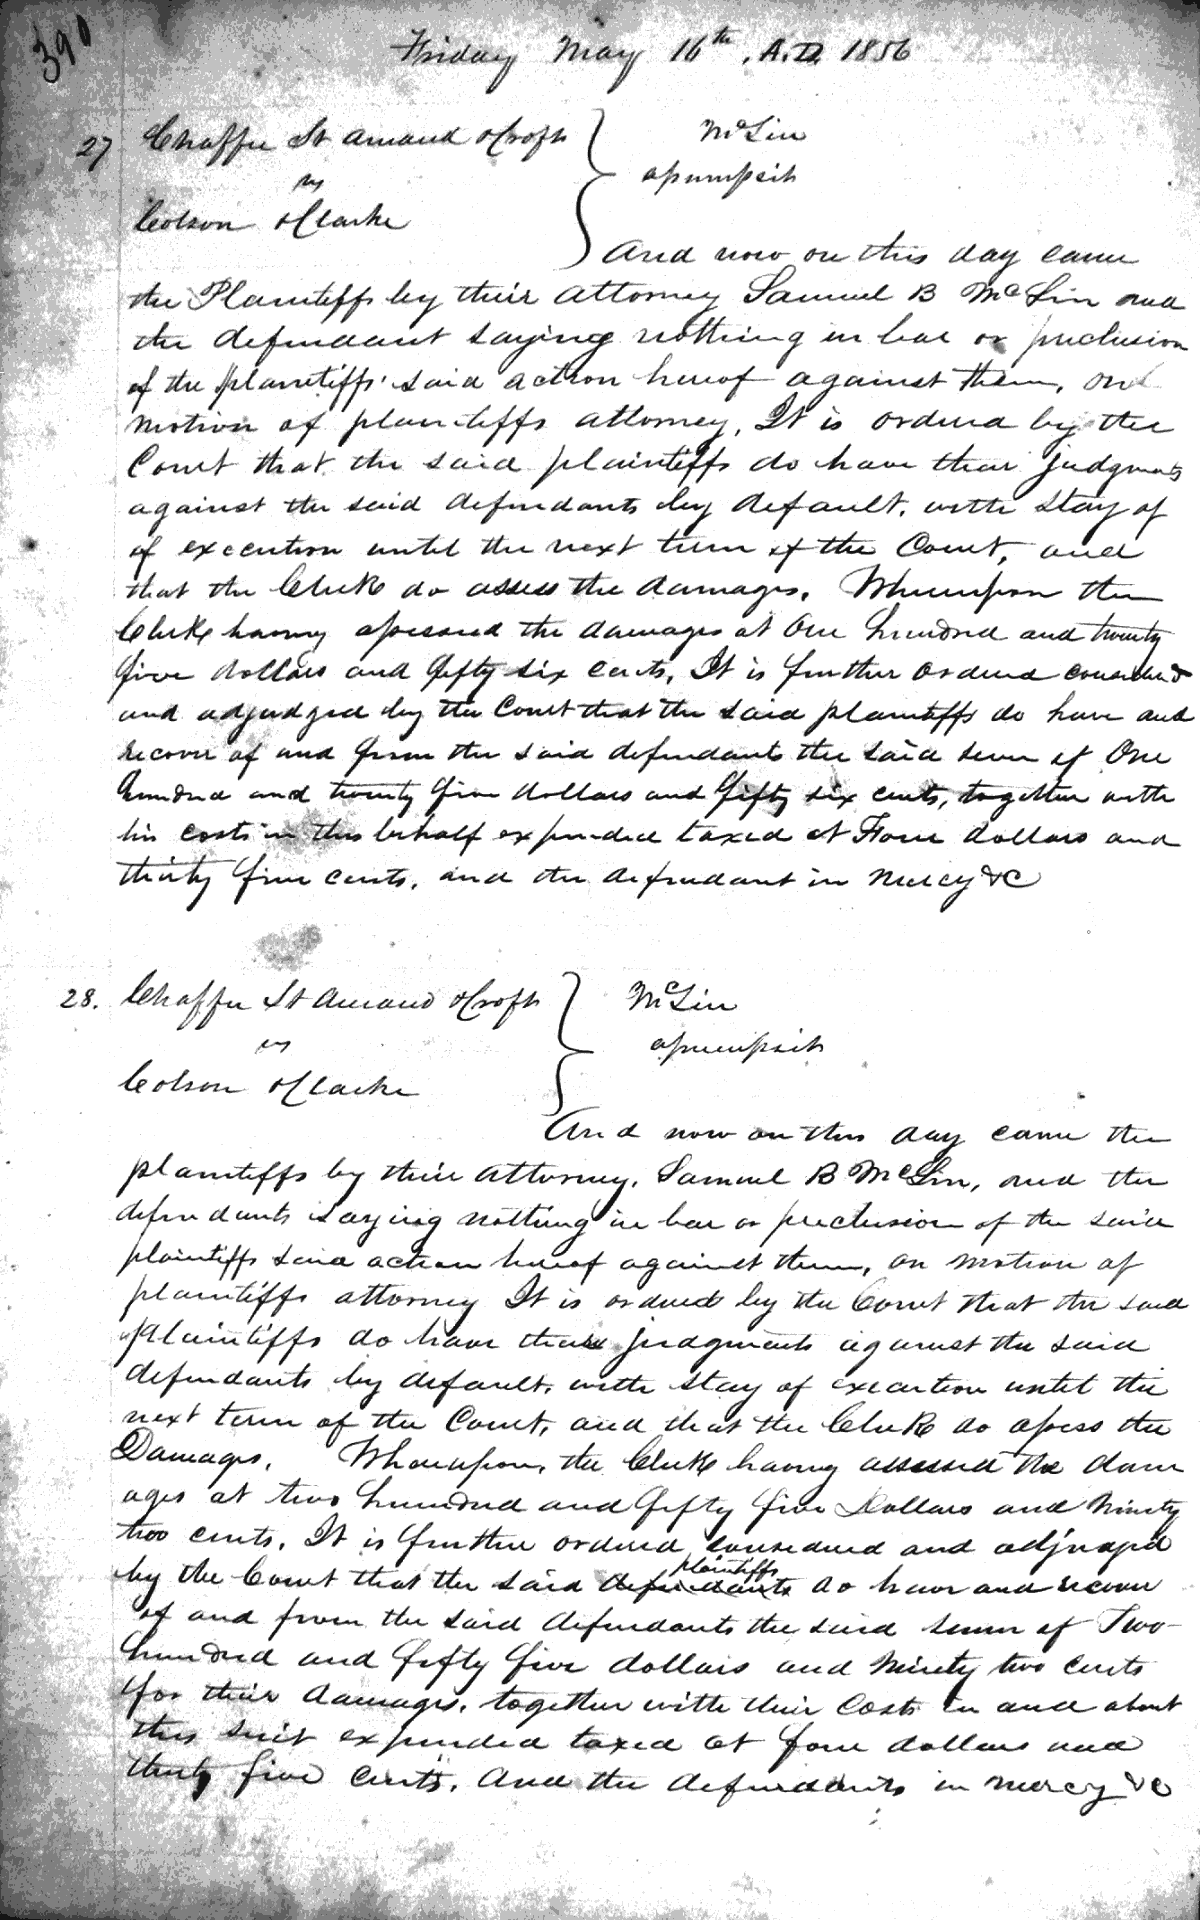 390
Friday May 16th. A.D. 1856
27 Chaffee St Amand & Croft } McLin
vs assumpsit
Colson & Clarke
And now on this day came
the Plaintiffs by their attorney Samuel B McLin and
the defendant saying nothing in bar or preclusion
of the plaintiffs' said action hereof against them, on
motion of plaintiffs attorney, It is ordered by the
Court that the said plaintiffs do have their judgments
against the said defendants by default, with stay of
of execution until the next term of the Court, and
that the Clerk do assess the damages. Whereupon the
Clerk having assessed the damages at One hundred and twenty
five dollars and fifty six cents, It is further ordered considered
and adjudged by the Court that the said plaintiffs do have and
recover of and from the said defendants the said sum of One
hundred and twenty five dollars and fifty six cents, together with
his costs in this behalf expended taxed at Four dollars and
thirty five cents, and the defendant in mercy &c
28. Chaffee St Amand & Croft } McLin
vs assumpsit
Colson & Clarke
And now on this day came the
plaintiffs by their attorney, Samuel B McLin, and the
defendants saying nothing in bar or preclusion of the said
plaintiffs said action hereof against them, on motion of
plaintiffs attorney It is ordered by the Court that the said
plaintiffs do have their judgments against the said
defendants by default, with stay of execution until the
next term of the Court, and that the Clerk do assess the
Damages. Whereupon, the Clerk having assessed the dam
ages at two hundred and fifty five Dollars and ninety
two cents, It is further ordered considered and adjudged
plaintiffs
by the Court that the said defendants do have and recover
of and from the said defendants the said sum of Two
hundred and fifty five dollars and ninety two cents
for their damages, together with their costs in and about
this suit expended taxed at four dollars and
thirty five cents. And the defendants in mercy &c